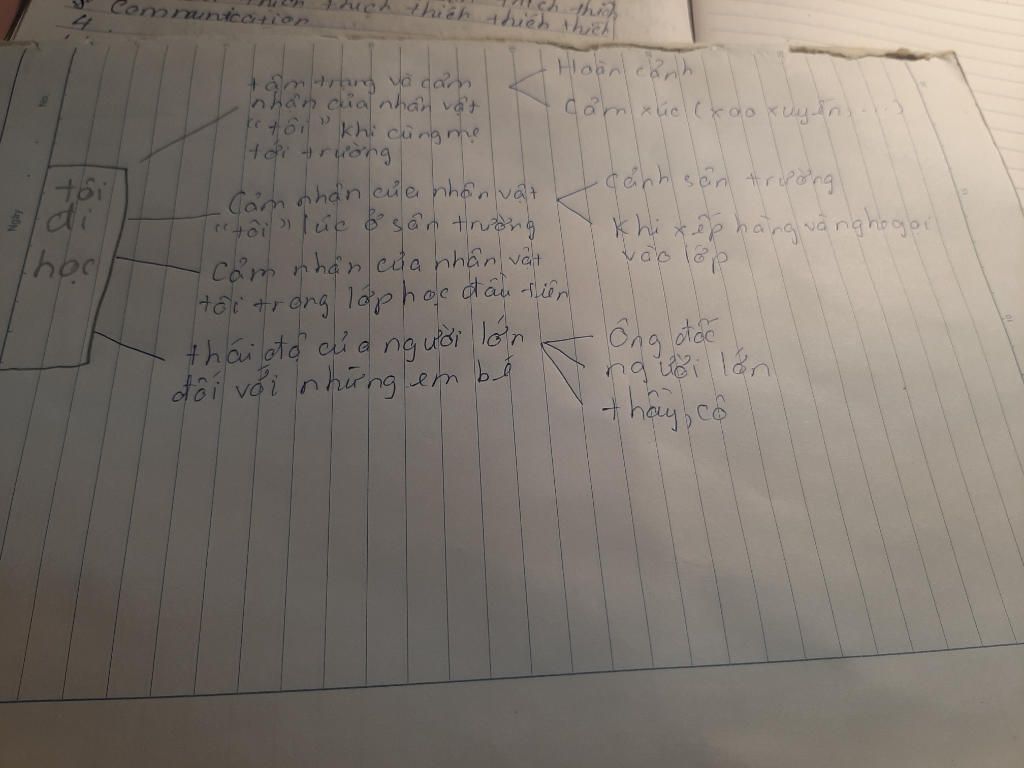 thích thích thích thích thích
3 Communication
4
tâm trạng và cảm
nhận của nhân vật
"tôi" khi cùng mẹ
tới trường
Hoàn cảnh
Cảm xúc (xao xuyến, ...)
tôi
đi
học
Cảm nhận của nhân vật
"tôi" lúc ở sân trường
cảnh sân trường
Khi xếp hàng và nghe gọi
vào lớp
Cảm nhận của nhân vật
tôi trong lớp học đầu tiên
thái độ của người lớn
đối với những em bé
Ông đốc
người lớn
thầy, cô
Ngày
No